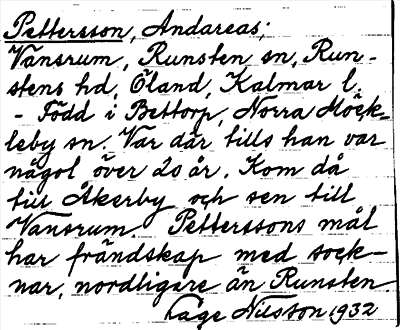 Pettersson, Andareas;
Vansrum, Runsten sn, Run-
stens hd, Öland, Kalmar l.
- Född i Bettorp, Norra Möck-
leby sn. Var där tills han var
något över 20 år. Kom då
till Åkerby och sen till
Vansrum. Petterssons mål
har frändskap med sock-
nar, nordligare än Runsten
Tage Nilsson 1932